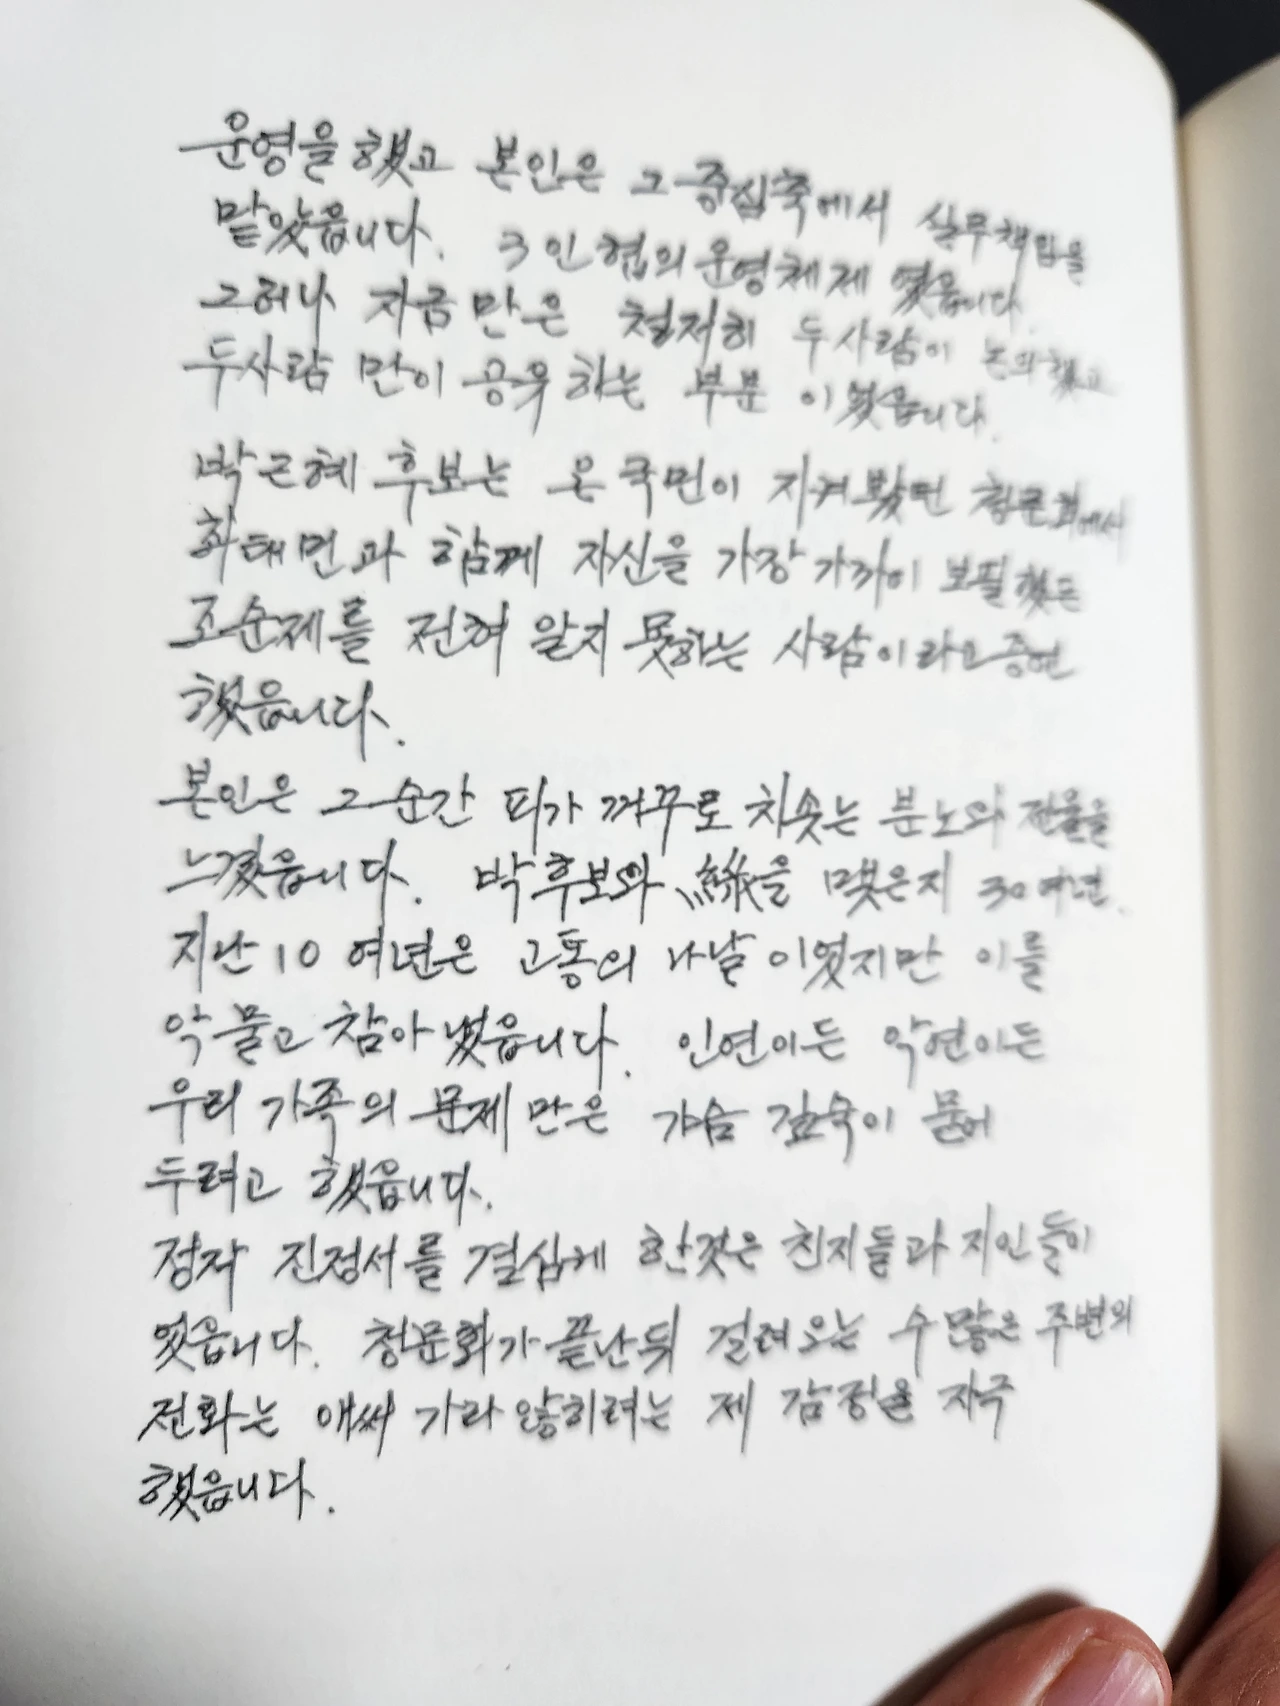 운영을 했고 본인은 그 중심축에서 실무책임을
맡았읍니다. 3인 협의 운영체제 였읍니다.
그허나 자금만은 철저히 두사람이 논의했고
두사람 만이 공유하는 부분 이였읍니다.
박근혜 후보는 온 국민이 지켜봤던 청문회에서
최태면과 함께 자신을 가장 가까이 보필했든
조순제를 전혀 알지 못하는 사람이라고 증언
했읍니다.
본인은 그 순간 피가 꺼꾸로 치솟는 분노와 전율을
느꼈읍니다. 박후보와 을 맺은지 30여년.
지난 10 여년은 고통의 나날 이였지만 이를
악물고 참아 냈읍니다. 인연이든 악연이든
우리 가족의 문제만은 가슴 깊숙이 묻어
두려고 했읍니다.
정작 진정서를 결심케 한것은 친지들과 지인들이
였읍니다. 청문회가 끝난뒤 걸려오는 수많은 주변의
전화는 애써 가라앉히려는 제 감정을 자극
했읍니다.